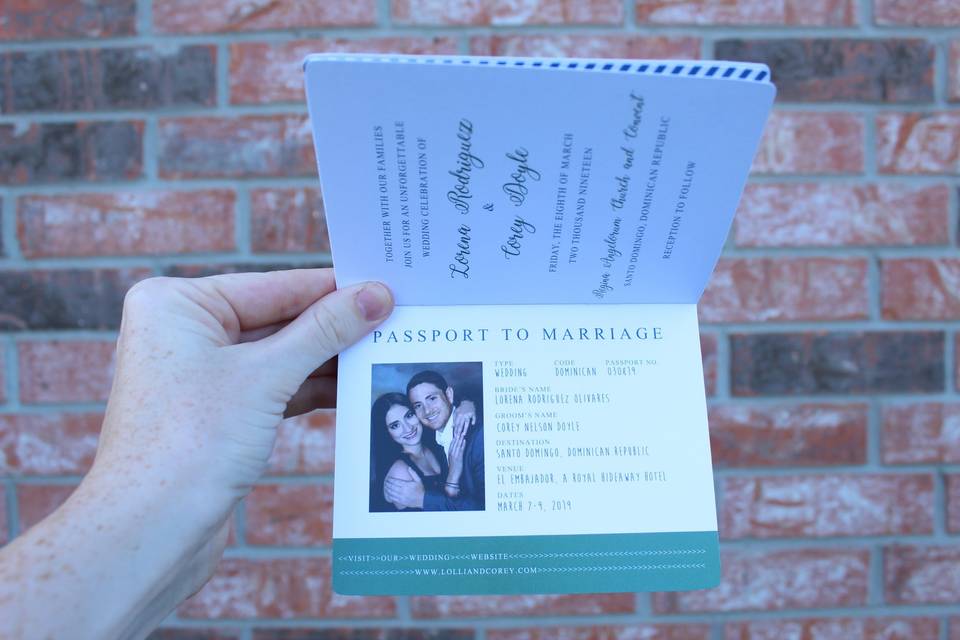 TOGETHER WITH OUR FAMILIES
JOIN US FOR AN UNFORGETTABLE
WEDDING CELEBRATION OF
Lorena Rodriguez
&
Corey Doyle
FRIDAY, THE EIGHTH OF MARCH
TWO THOUSAND NINETEEN
Regina Angelorum Church and Convent
SANTO DOMINGO, DOMINICAN REPUBLIC
RECEPTION TO FOLLOW
PASSPORT TO MARRIAGE
TYPE CODE PASSPORT NO.
WEDDING DOMINICAN 030819
BRIDE'S NAME
LORENA RODRIGUEZ OLIVARES
GROOM'S NAME
COREY NELSON DOYLE
DESTINATION
SANTO DOMINGO, DOMINICAN REPUBLIC
VENUE
EL EMBAJADOR, A ROYAL HIDEAWAY HOTEL
DATES
MARCH 7-9, 2019
<<VISIT>>OUR>>WEDDING<<<WEBSITE<<<>>>>>>>><<<<<<<<<>>>>>>>>>>>>>>>>>
<<<<<<<<>>>>>>>WWW.LOLLIANDCOREY.COM>>>>>>>>>>>>>>><<<<<<<<<<<<<<<<